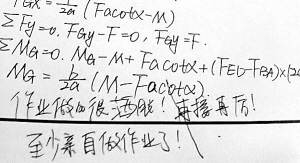 F_GX = 1/2a (Facotα-M)
ΣFy=0. FGy-F=0, FGy=F.
ΣMG=0. MG-M+Facotα+(FED-FBA)×(2a
MG = b/2a (M-Facotα)
作业做的很认真！再接再厉！
至少亲自做作业了！